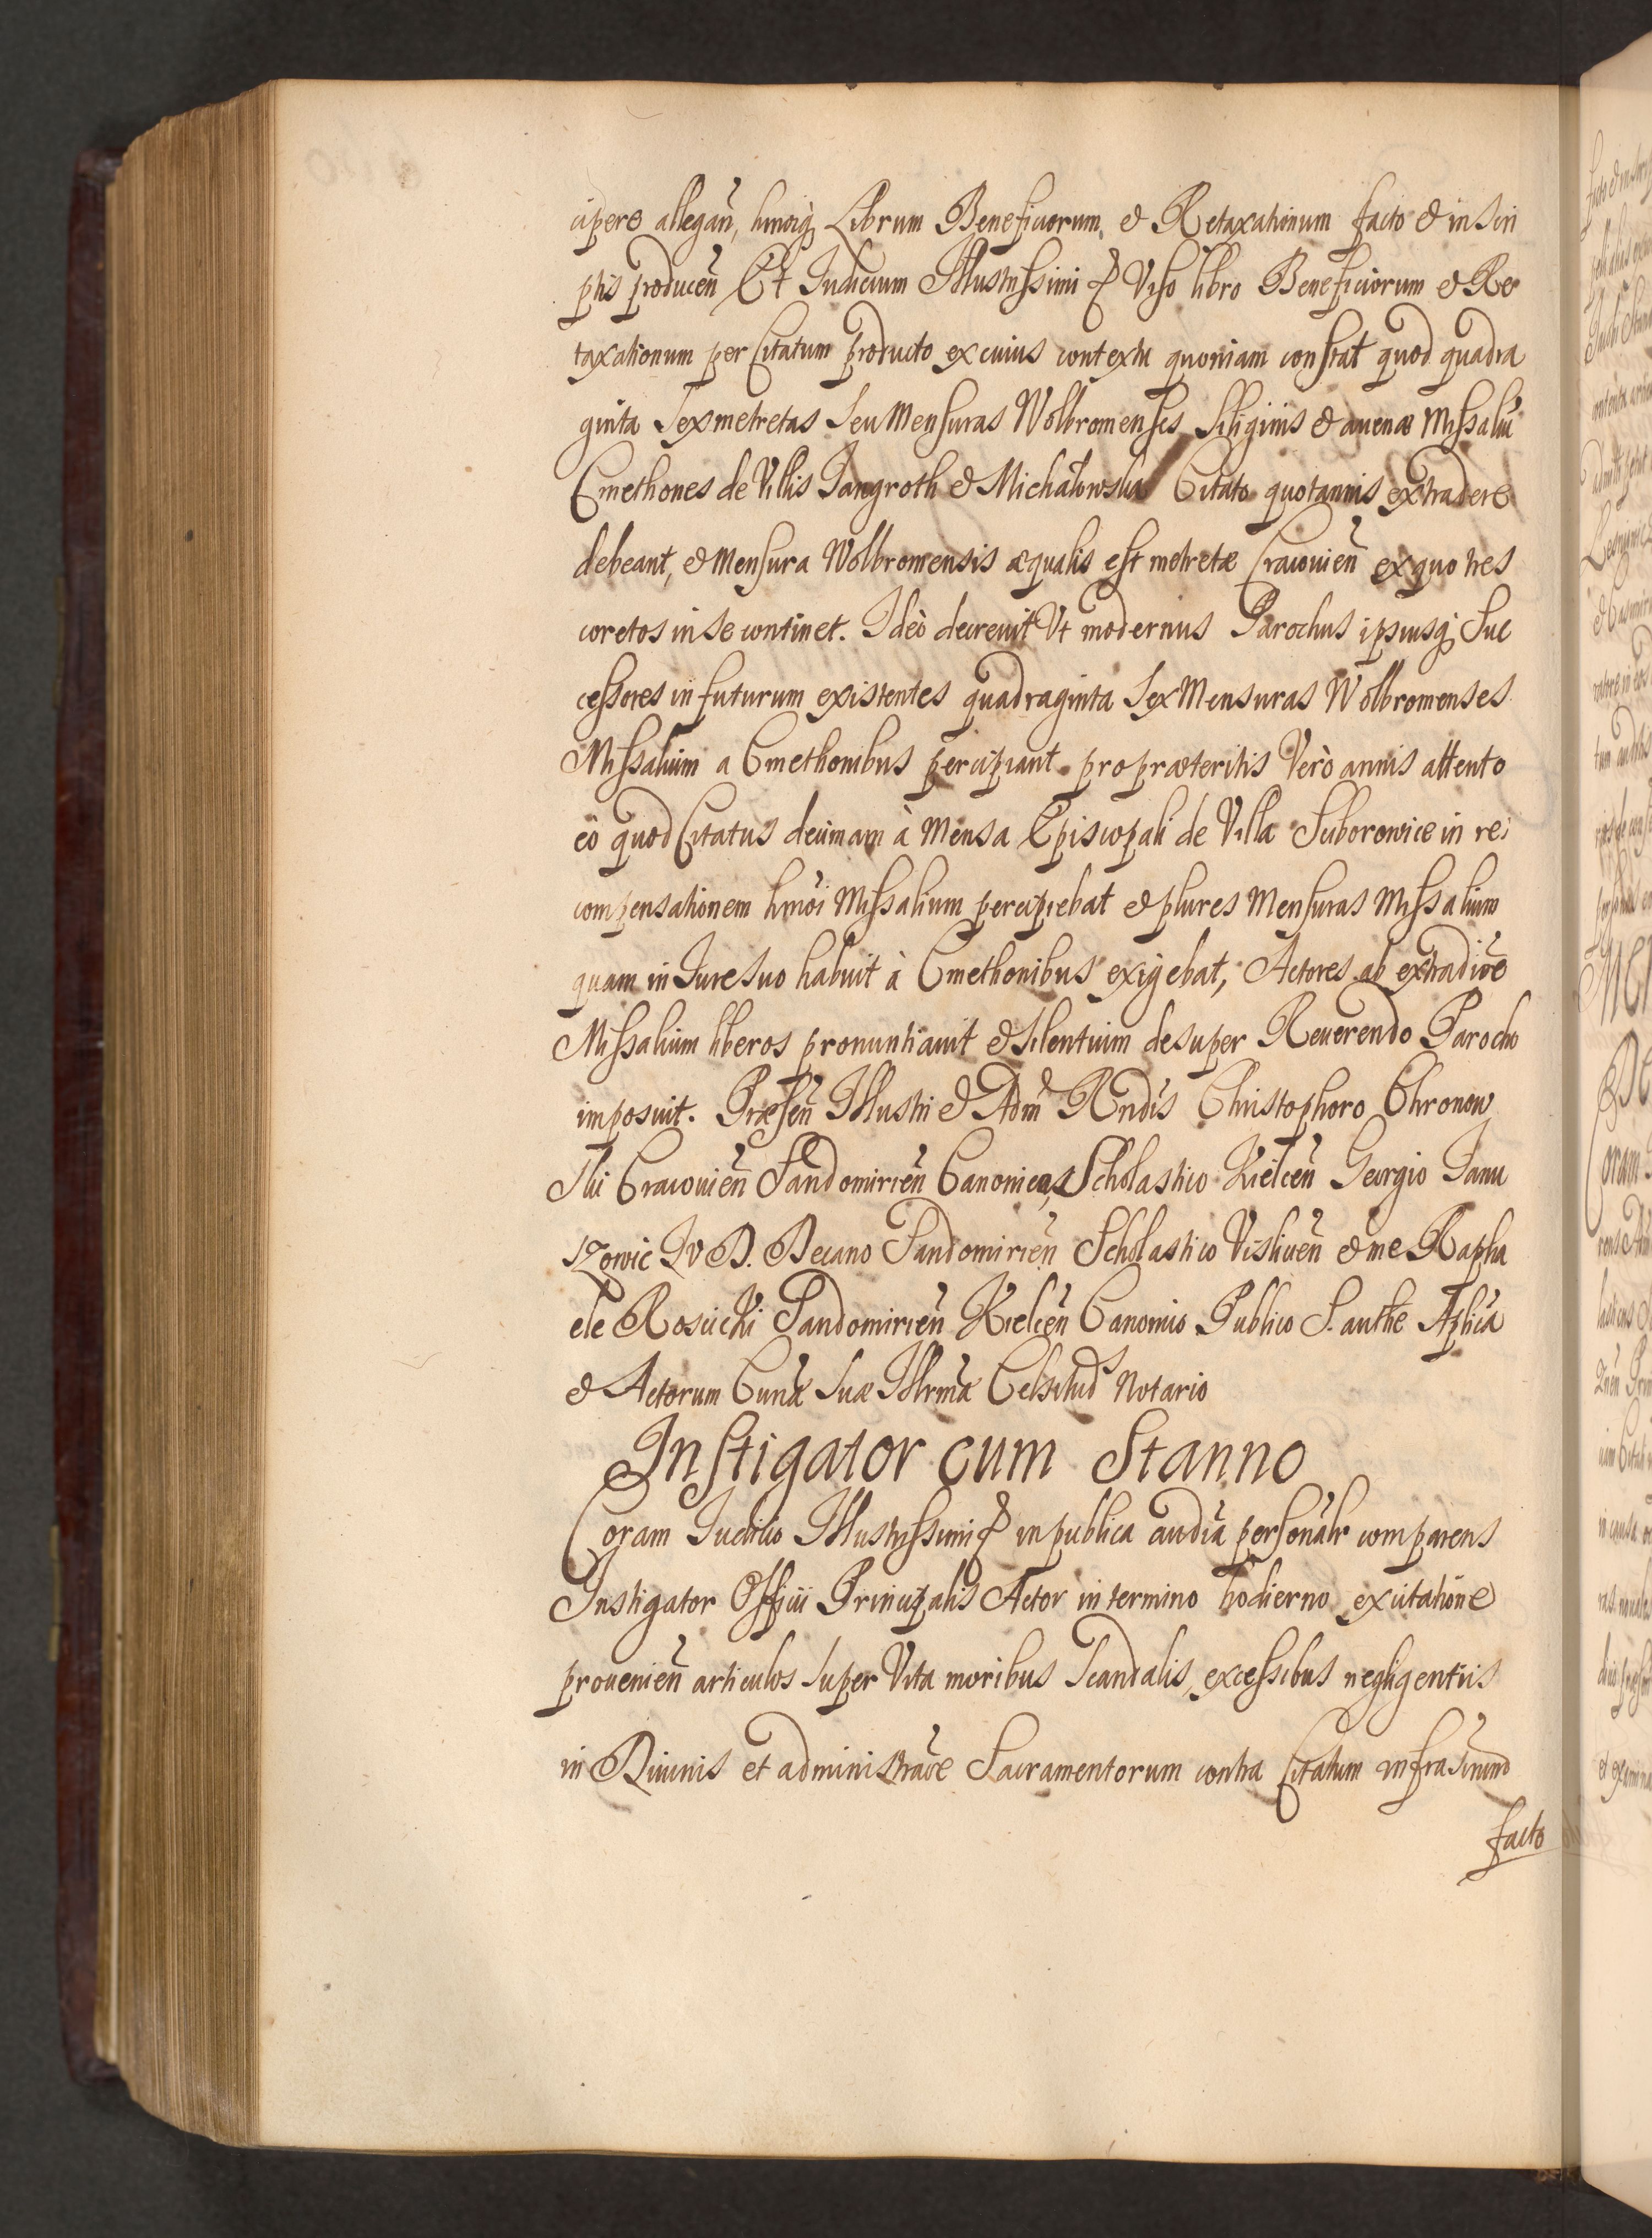 cipere allegañ, hincq́ Librum Beneficiorum & Retaxationum facto & in scri
ptis producen̄ Et Iudicium Illustrissimi & Viso libro Beneficiorum & Re
taxationum per Citatum producto ex cuius contextu quoniam constat quod quadra
ginta sex metretas seu Mensuras Wolbromenses siliginis & auenæ Missaliū
Cmethones de Villis Iangroth & Michałowska Citato quotannis extradere
debeant, & Mensura Wolbromensis æqualis est metretæ Cracouien̄ ex quo tres
coretos in se continet. Ideò decreuit Vt modernus Parochus ipsiusq́ Suc
cessores in futurum existentes quadraginta sex Mensuras Wolbromenses
Missalium a Cmethonibus percipiant pro præteritis Verò annis attento
eò quod Citatus decimam à Mensa Episcopali de Villa Suborowice in re
compensationem hm̄oi Missalium percipiebat & plures Mensuras Missalium
quam in Iure suo habuit à Cmethonibus exigebat, Actores ab extradic̄e
Missalium liberos pronuntiauit & silentium desuper Reuerendo Parocho
imposuit. Præsen̄ Illustri & Adm̄ Rn̄dis Christophoro Chronow
ski Cracouien̄ Sandomirien̄ Canonico, Scholastico Kielcen̄ Georgio Ianu
szowic IvD. Decano Sandomirien̄ Scholastico Vislicen̄ & me Rapha
ele Rosiicki Sandomirien̄ Kielcen̄ Canonico Publico S. autħe Aplica
& Actorum Curiæ suæ Illrmæ Celsitud Notario
Instigator cum Stanno
Coram Iudicio Illustrissimi & in publica audīa personālr comparens
Instigator Officii Principalis Actor in termino hodierno ex citatione
prouenien̄ articulos super Vita moribus scandalis, excessibus negligentiis
in Diuinis et administrac̄e Sacramentorum contra Citatum infrascriptum
facto